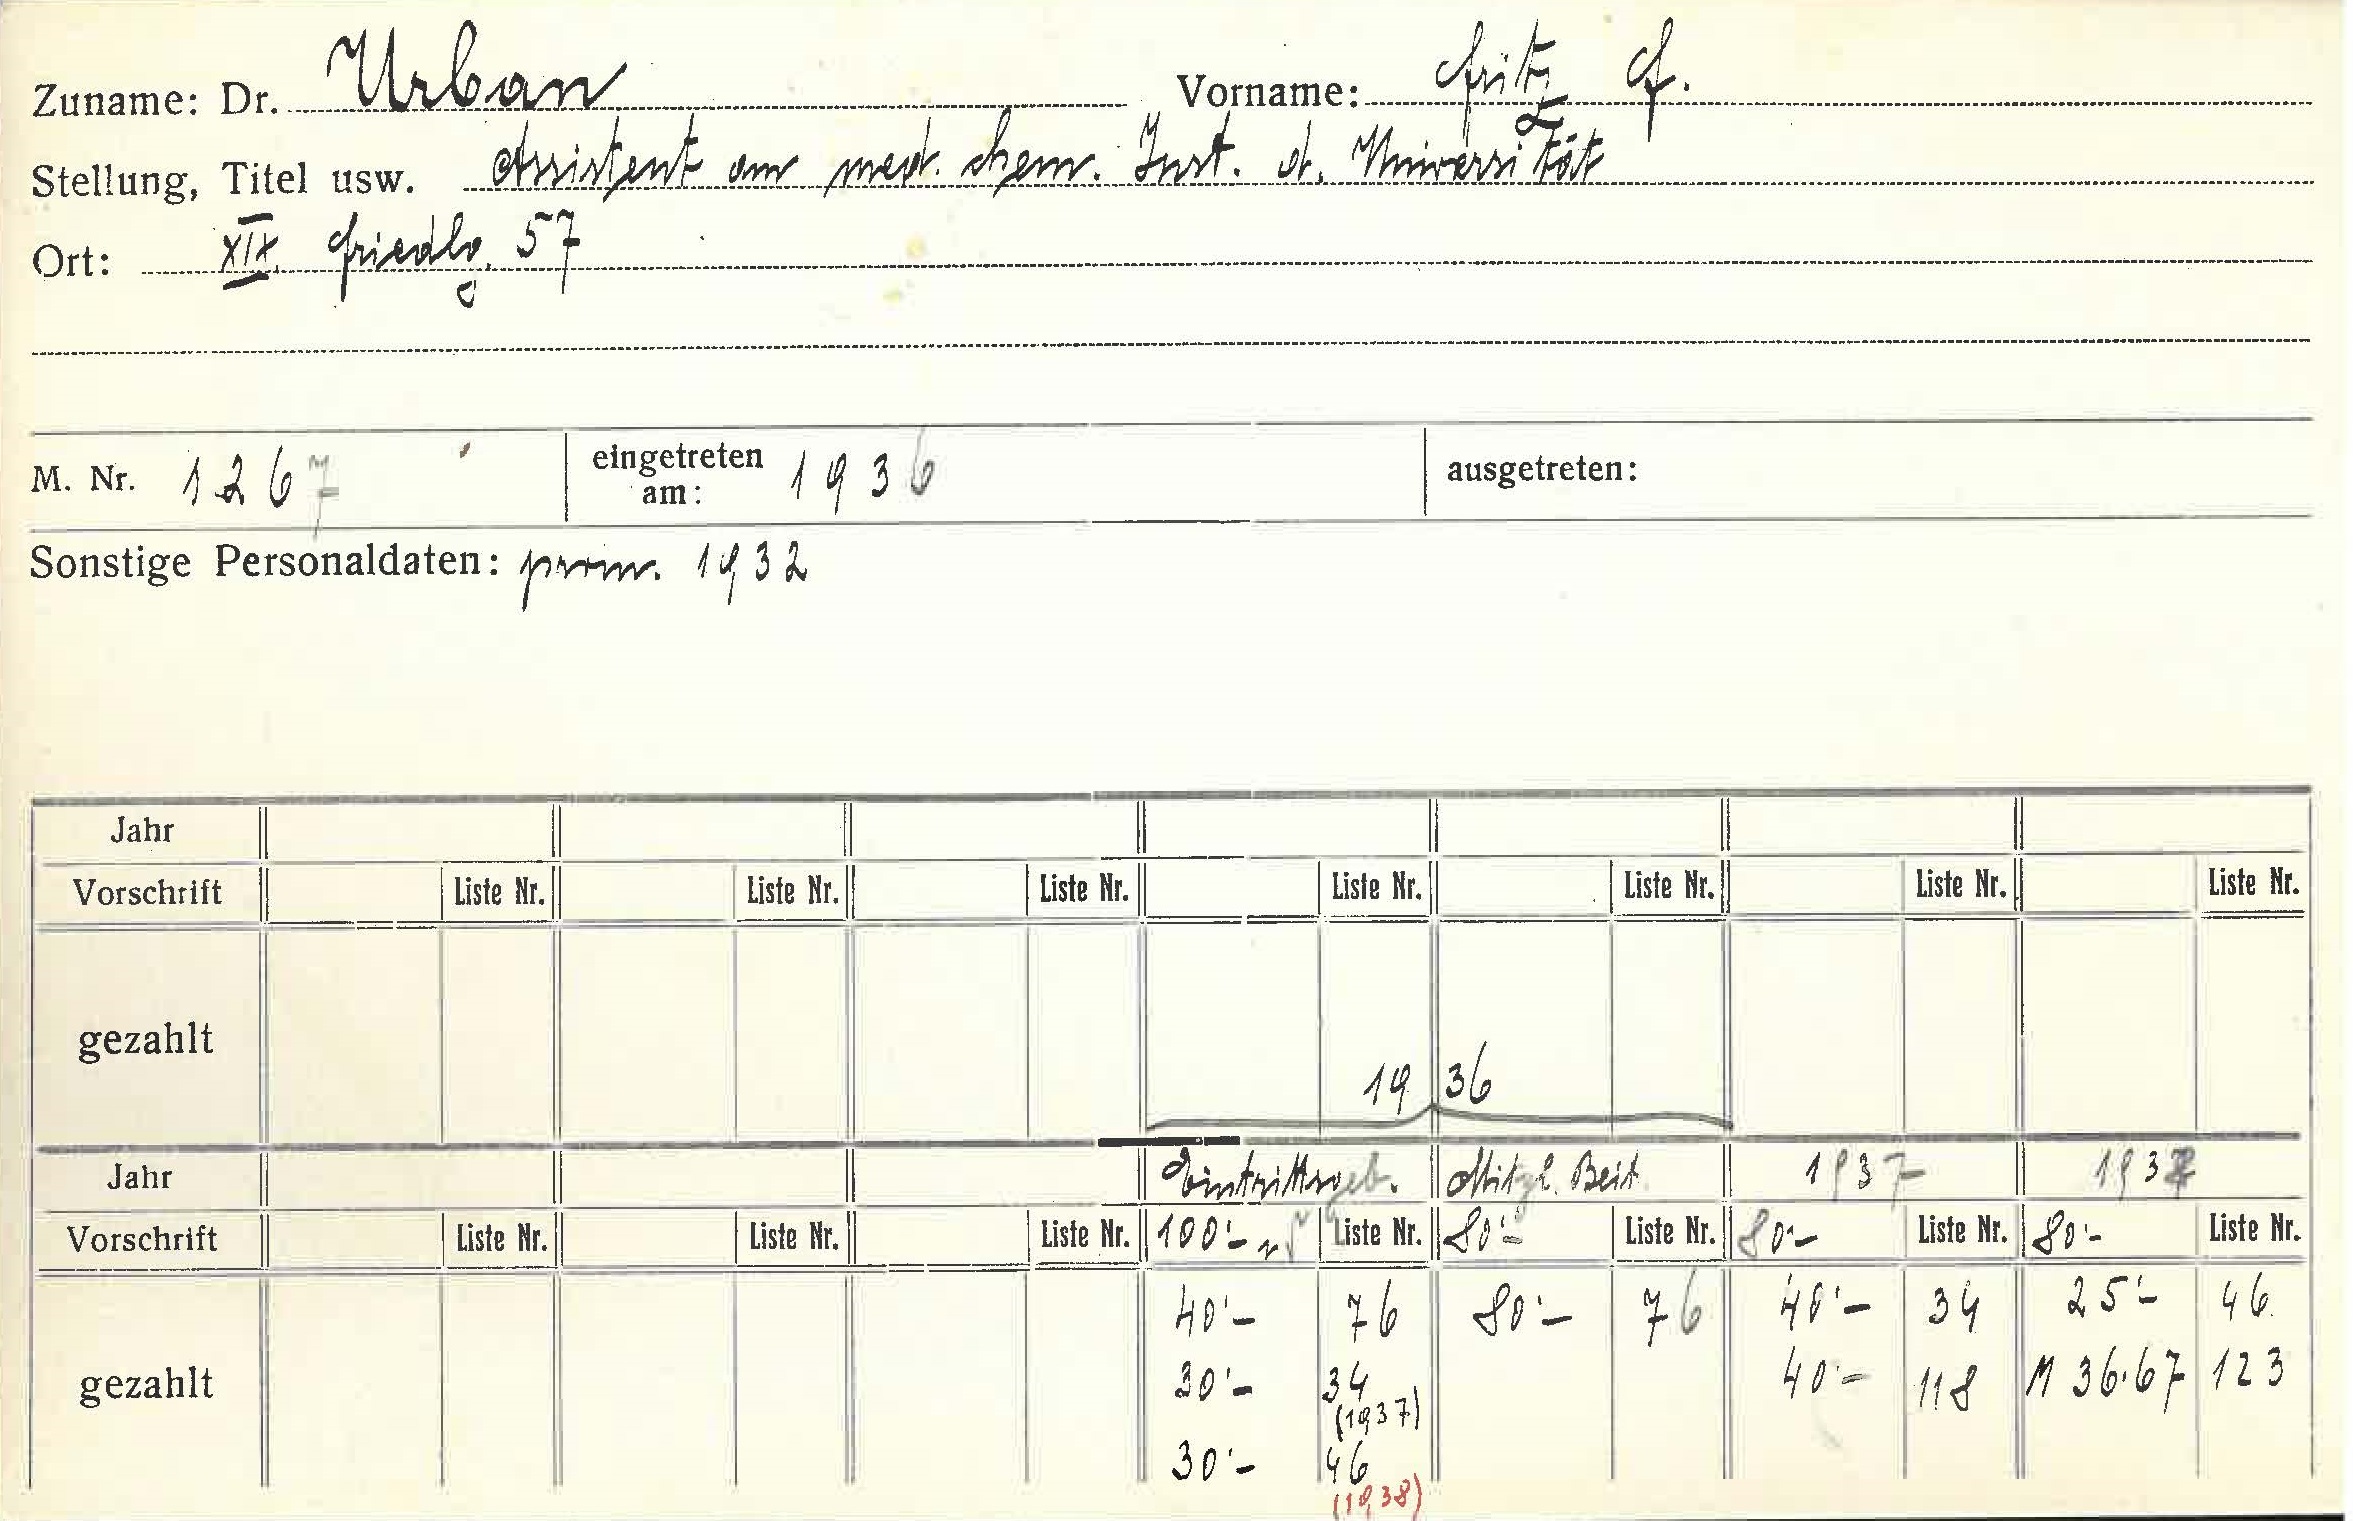 Zuname: Dr. Urban Vorname: Fritz F.
Stellung, Titel usw. Assistent am med. chem. Inst. d. Universität
Ort: XIX. Friedlg. 57
M. Nr. 1267 eingetreten am: 1936 ausgetreten:
Sonstige Personaldaten: prom. 1932
Jahr
Vorschrift Liste Nr. Liste Nr. Liste Nr. Liste Nr. Liste Nr. Liste Nr. Liste Nr.
gezahlt
1936
Jahr Eintrittsgeb. Mitgl. Beit. 1937 193
Vorschrift Liste Nr. Liste Nr. Liste Nr. 100'- Liste Nr. 80'- Liste Nr. 80'- Liste Nr. 80'- Liste Nr.
40'- 76 80'- 76 40'- 34 25'- 46
gezahlt 30'- 34 40'- 118 M 36.67 123
(1937)
30'- 46
(1938)